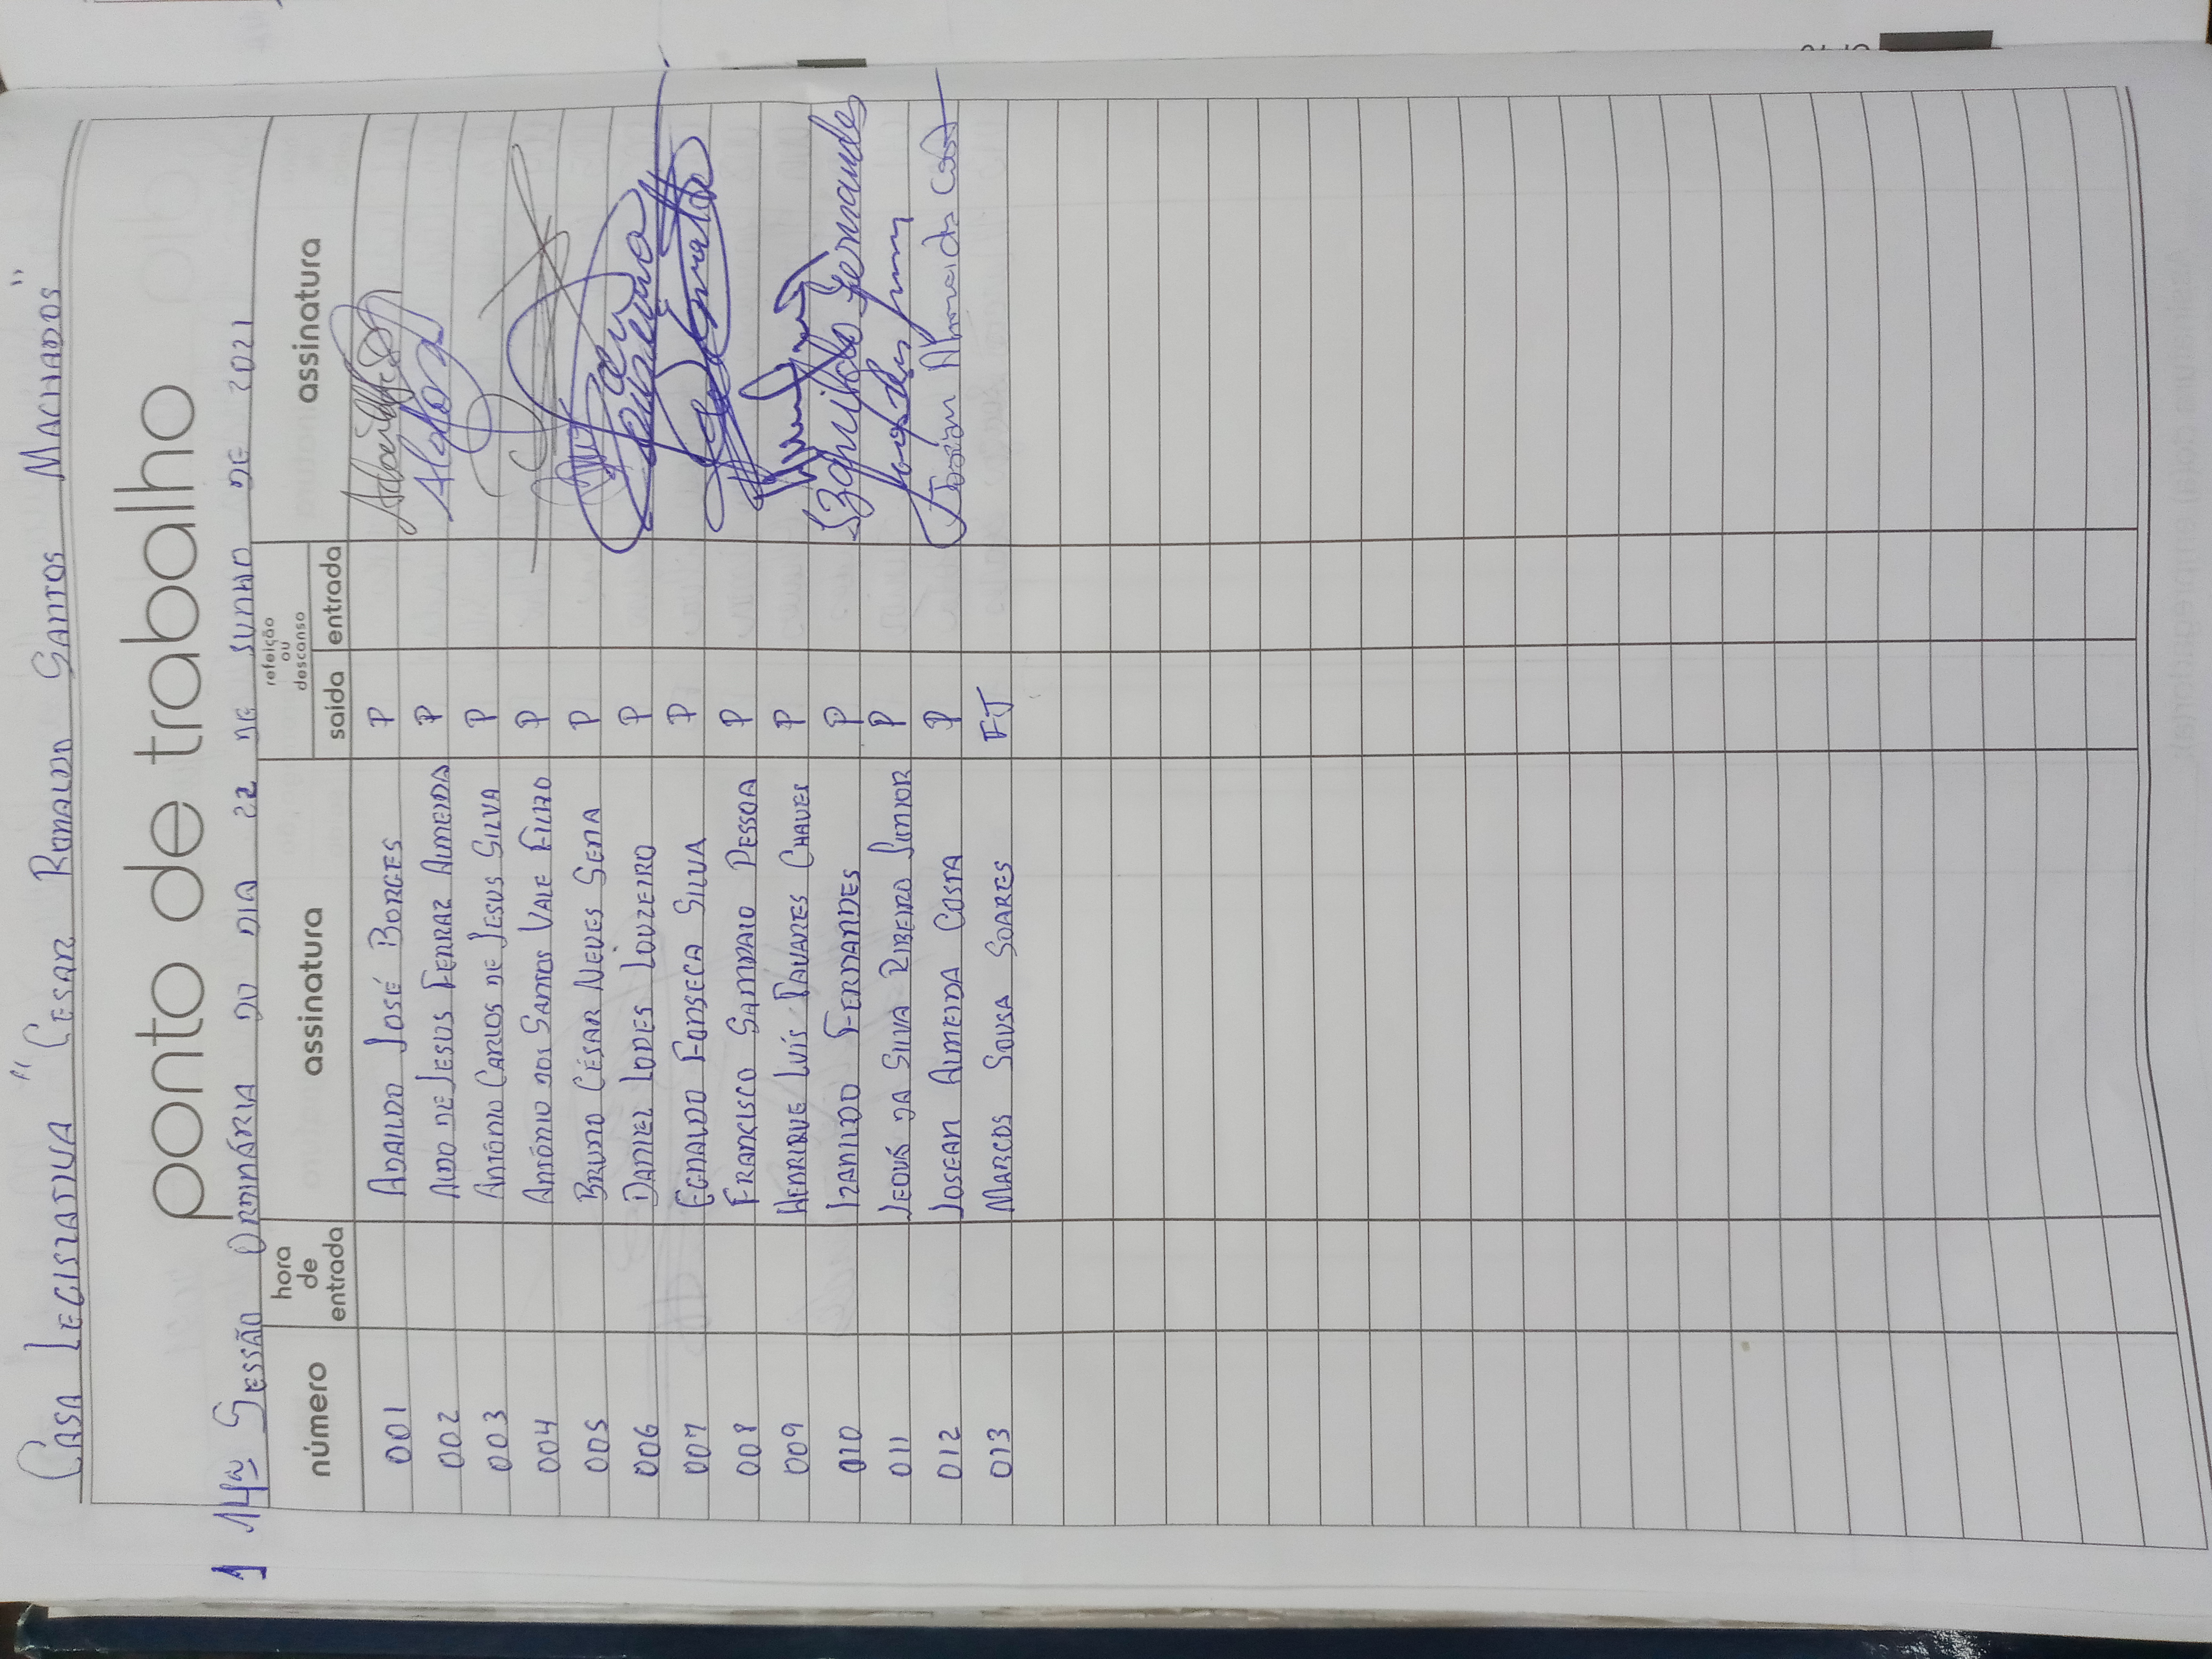 CASA LEGISLATIVA "CESAR RONALDO SANTOS MACHADOS"
ponto de trabalho
1 14ª SESSÃO ORDINÁRIA DO DIA 22 DE JUNHO DE 2021
número hora de entrada assinatura refeição ou descanso saida entrada assinatura
001 ADAILDO JOSÉ BORGES P
002 ALDO DE JESUS FERRAZ ALMEIDA P Aldo
003 ANTÔNIO CARLOS DE JESUS SILVA P
004 ANTÔNIO DOS SANTOS VALE FILHO P
005 BRUNO CÉSAR NEVES SENA P
006 DANIEL LOPES LOUZEIRO P
007 EGNALDO FONSECA SILVA P
008 FRANCISCO SAMPAIO PESSOA P
009 HENRIQUE LUÍS TAVARES CHAVES P
010 IZANILDO FERNANDES P Izanildo Fernandes
011 JEOVÁ DA SILVA RIBEIRO JUNIOR P
012 JOSEAN ALMEIDA COSTA P Josean Almeida Costa
013 MARCOS SOUSA SOARES FJ